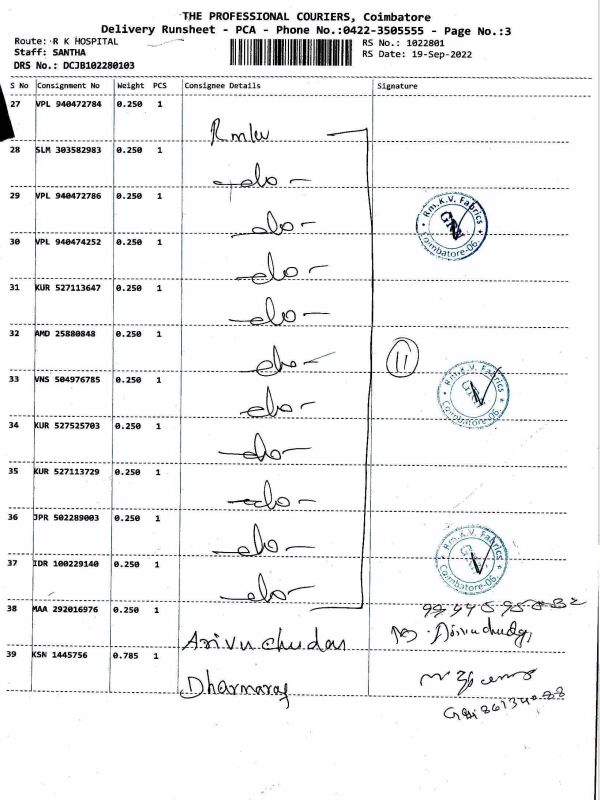 THE PROFESSIONAL COURIERS, Coimbatore
Delivery Runsheet - PCA - Phone No.:0422-3505555 - Page No.:3
Route: R K HOSPITAL
RS No.: 1022801
Staff: SANTHA
RS Date: 19-Sep-2022
DRS No.: DCJB102280103
S No Consignment No Weight PCS Consignee Details Signature
27 VPL 940472784 0.250 1
Rmkv
28 SLM 303582983 0.250 1
-do-
29 VPL 940472786 0.250 1
-do-
Rm.K.V. Fabrics
GRN
Coimbatore-06.
30 VPL 940474252 0.250 1
-do-
31 KUR 527113647 0.250 1
-do-
32 AMD 25880848 0.250 1
-do-
11
33 VNS 504976785 0.250 1
-do-
Rm.K.V. Fabrics
GRN
Coimbatore-06.
34 KUR 527525703 0.250 1
-do-
35 KUR 527113729 0.250 1
-do-
36 JPR 502289003 0.250 1
-do-
Rm.K.V. Fabrics
GRN
Coimbatore-06.
37 IDR 100229140 0.250 1
-do-
38 MAA 292016976 0.250 1
Arivuchudar
39 KSN 1445756 0.785 1
Dharmaraj